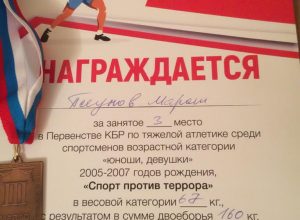 НАГРАЖДАЕТСЯ
за занятое 3 место
в Первенстве КБР по тяжелой атлетике среди
спортсменов возрастной категории
"юноши, девушки"
2005-2007 годов рождения,
"Спорт против террора"
в весовой категории 67 кг.,
с результатом в сумме двоеборья 160 кг.